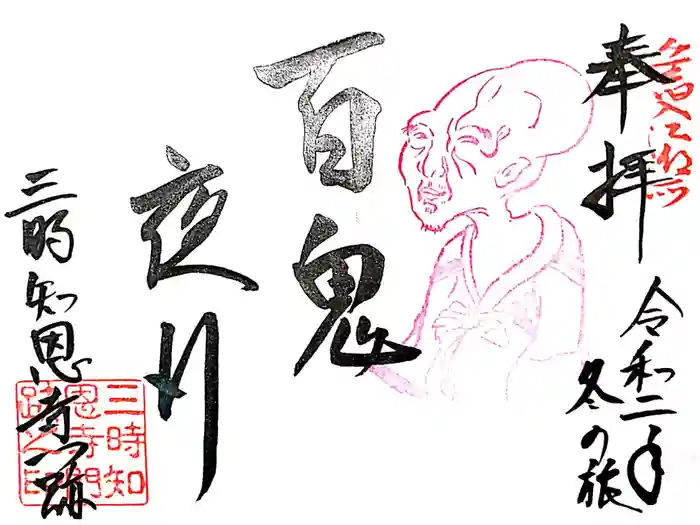 奉拝
令和二年
冬の旅
百鬼
夜行
三時知恩寺跡
三時知
恩寺門
跡之印